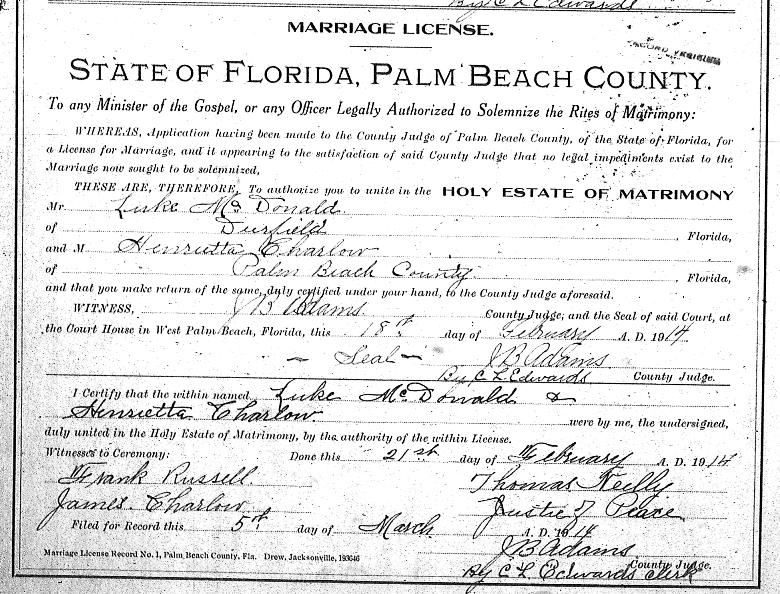 By C L Edwards
MARRIAGE LICENSE.
STATE OF FLORIDA, PALM BEACH COUNTY.
To any Minister of the Gospel, or any Officer Legally Authorized to Solemnize the Rites of Matrimony:
WHEREAS, Application having been made to the County Judge of Palm Beach County, of the State of Florida, for
a License for Marriage, and it appearing to the satisfaction of said County Judge that no legal impediments exist to the
Marriage now sought to be solemnized,
THESE ARE, THEREFORE, To authorize you to unite in the HOLY ESTATE OF MATRIMONY
Mr. Luke McDonald
of Durfield, Florida,
and M Henrietta Charlow
of Palm Beach County, Florida,
and that you make return of the same, duly certified under your hand, to the County Judge aforesaid.
WITNESS, J B Adams County Judge, and the Seal of said Court, at
the Court House in West Palm Beach, Florida, this 18th day of February A. D. 1914
— Seal — J B Adams
By C L Edwards County Judge.
I Certify that the within named Luke McDonald &
Henrietta Charlow were by me, the undersigned,
duly united in the Holy Estate of Matrimony, by the authority of the within License.
Witnesses to Ceremony: Done this 21st day of February A. D. 1914
Frank Russell Thomas Reilly
James Charlow Justice of Peace
Filed for Record this 5th day of March A. D. 1914
J B Adams
County Judge.
Marriage License Record No. 1, Palm Beach County, Fla. Drew, Jacksonville, 193646
By C L Edwards Clerk